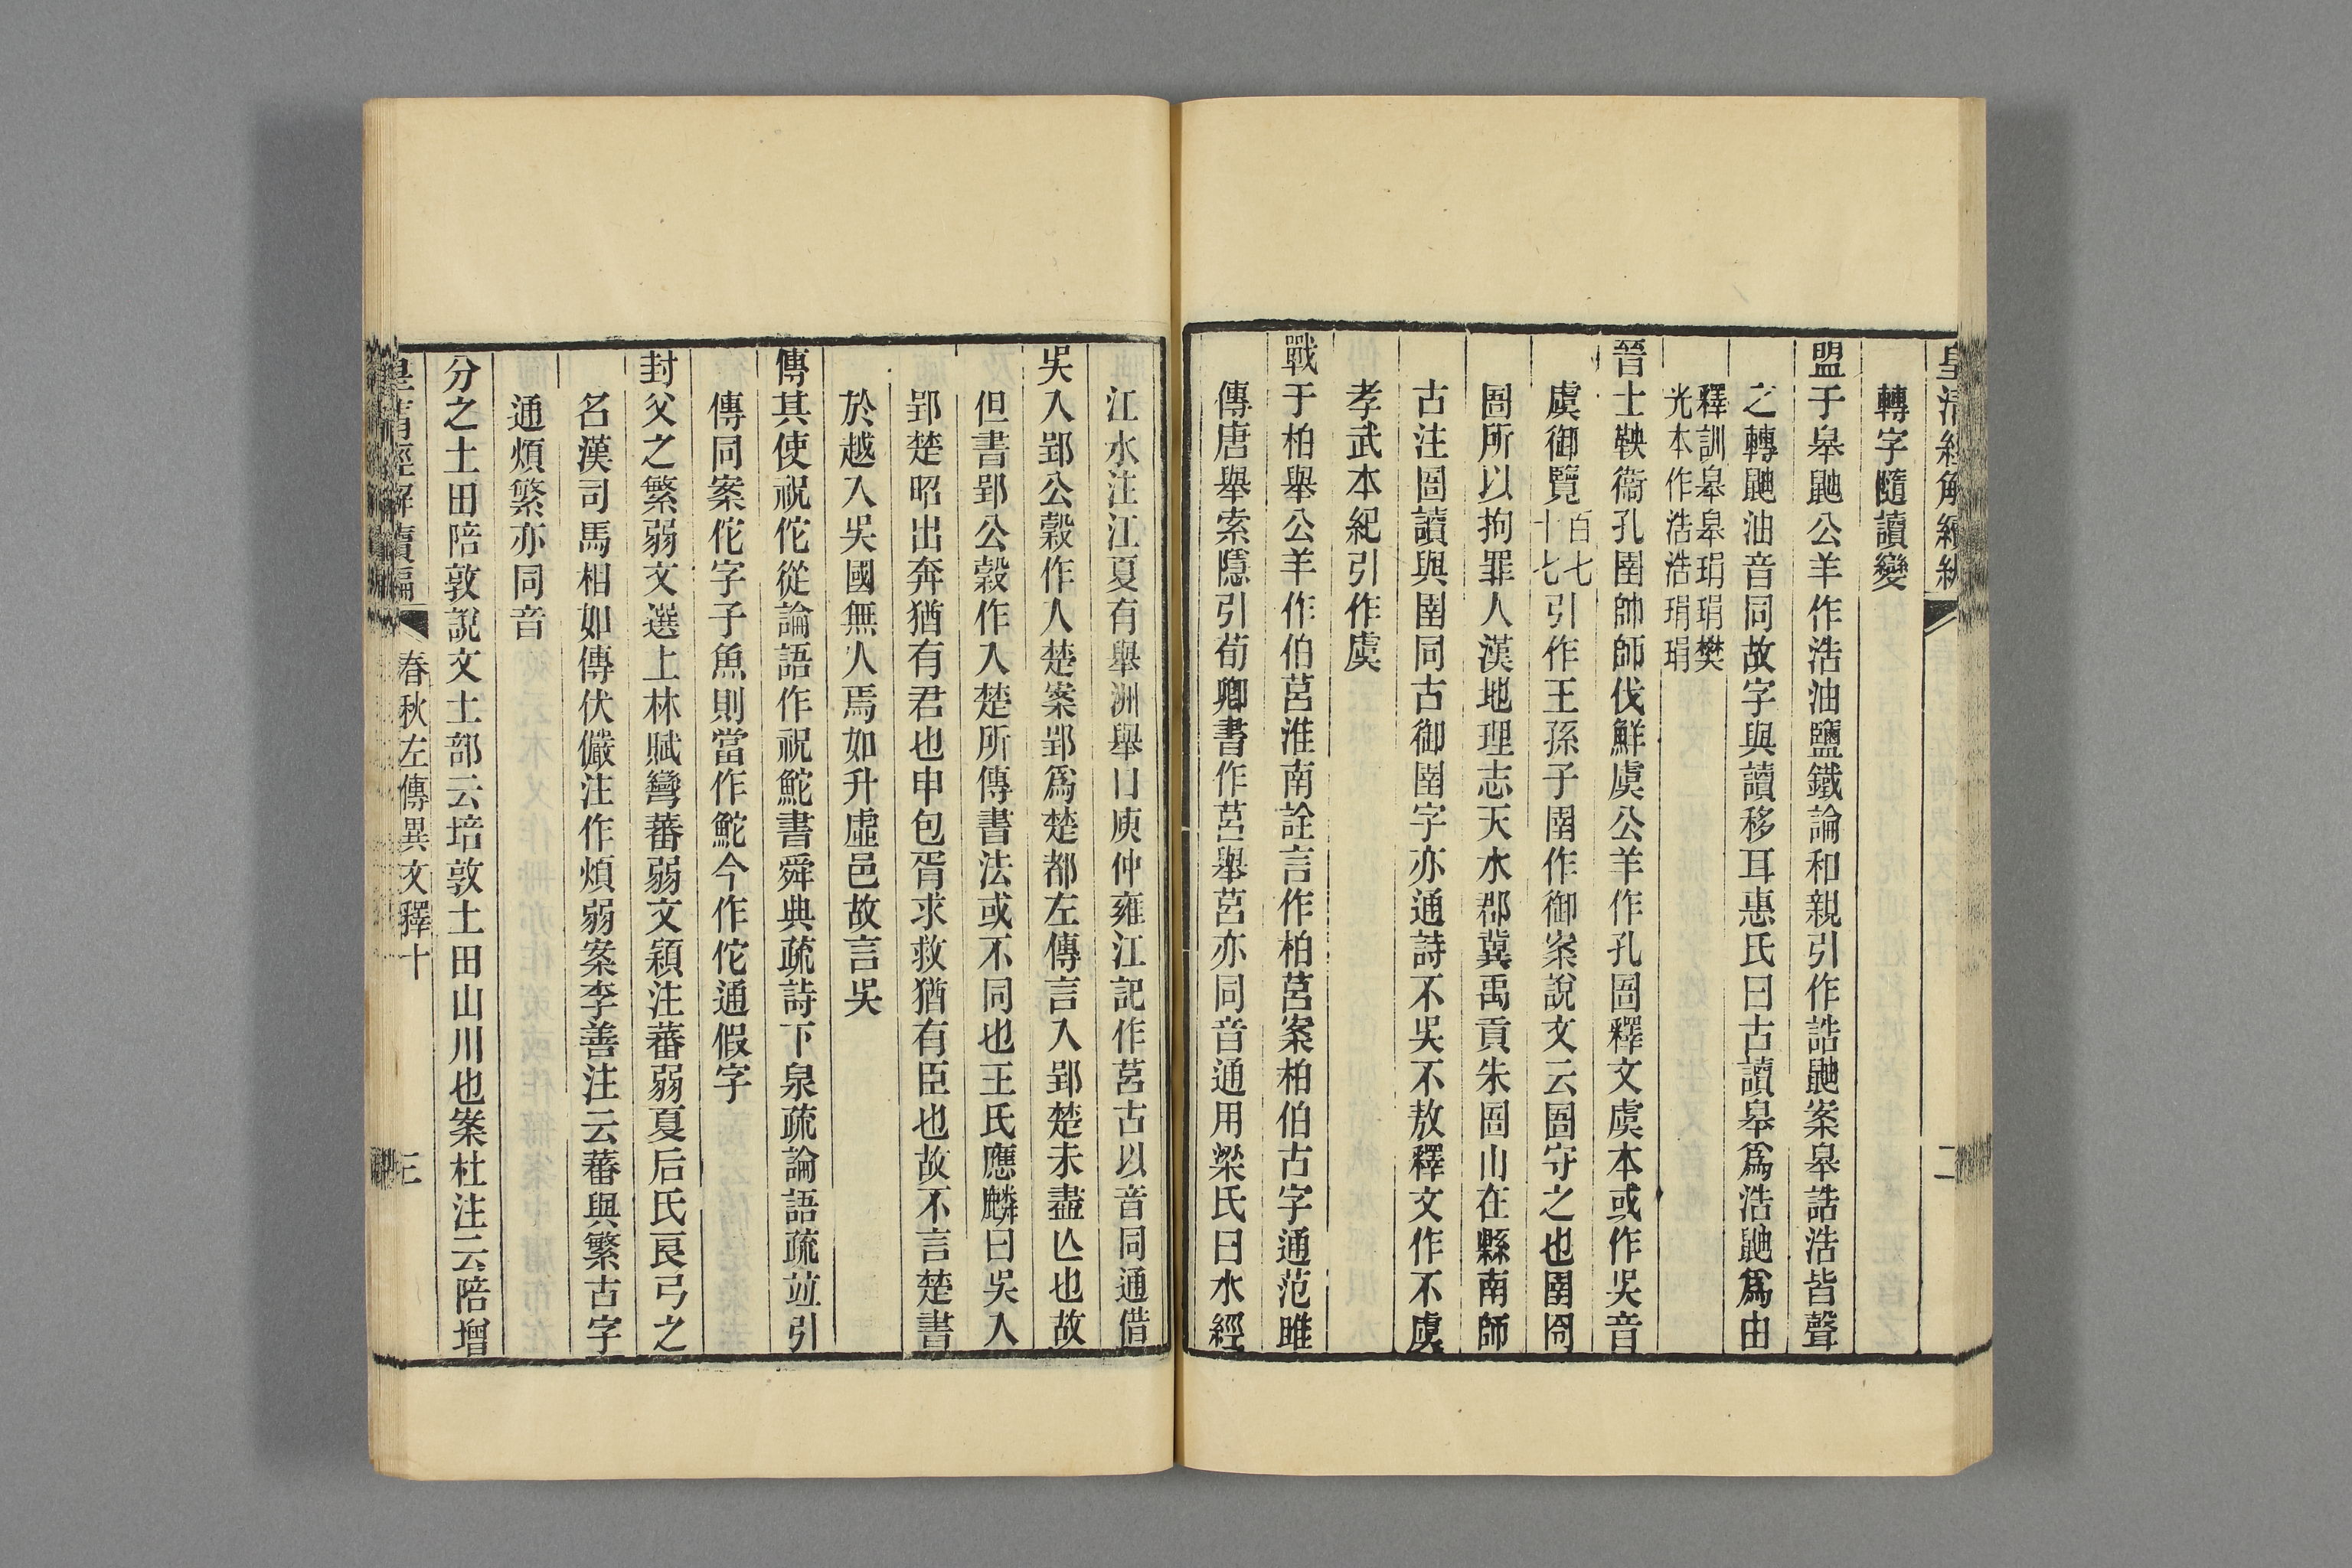 皇清經解續編
二
轉字隨讀變
盟于皋鼬公羊作浩油鹽鐵論和親引作誥鼬案皋誥浩皆聲
之轉鼬油音同故字與讀移耳惠氏曰古讀皋為浩鼬為由
釋訓皋皋琄琄樊
光本作浩浩琄琄
晉士鞅衞孔圉帥師伐鮮虞公羊作孔圄釋文虞本或作吳音
虞御覽百七十七引作王孫子圉作御案說文云圄守之也圉囹
圄所以拘罪人漢地理志天水郡冀禹貢朱圄山在縣南師
古注圄讀與圉同古御圉字亦通詩不吳不敖釋文作不虞
孝武本紀引作虞
戰于柏舉公羊作伯莒淮南詮言作柏莒案柏伯古字通范雎
傳唐舉索隱引荀卿書作莒舉莒亦同音通用梁氏曰水經
江水注江夏有舉洲舉口庾仲雍江記作莒古以音同通借
吳入郢公穀作入楚案郢爲楚都左傳言入郢楚未盡亾也故
但書郢公穀作入楚所傳書法或不同也王氏應麟曰吳入
郢楚昭出奔猶有君也申包胥求救猶有臣也故不言楚書
於越入吳國無人焉如升虛邑故言吳
傳其使祝佗從論語作祝鮀書舜典疏詩下泉疏論語疏竝引
傳同案佗字子魚則當作鮀今作佗通假字
封父之繁弱文選上林賦彎蕃弱文穎注蕃弱夏后氏良弓之
名漢司馬相如傳伏儼注作煩弱案李善注云蕃與繁古字
通煩繁亦同音
分之土田陪敦說文土部云培敦土田山川也案杜注云陪增
皇清經解續編
春秋左傳異文釋十
三